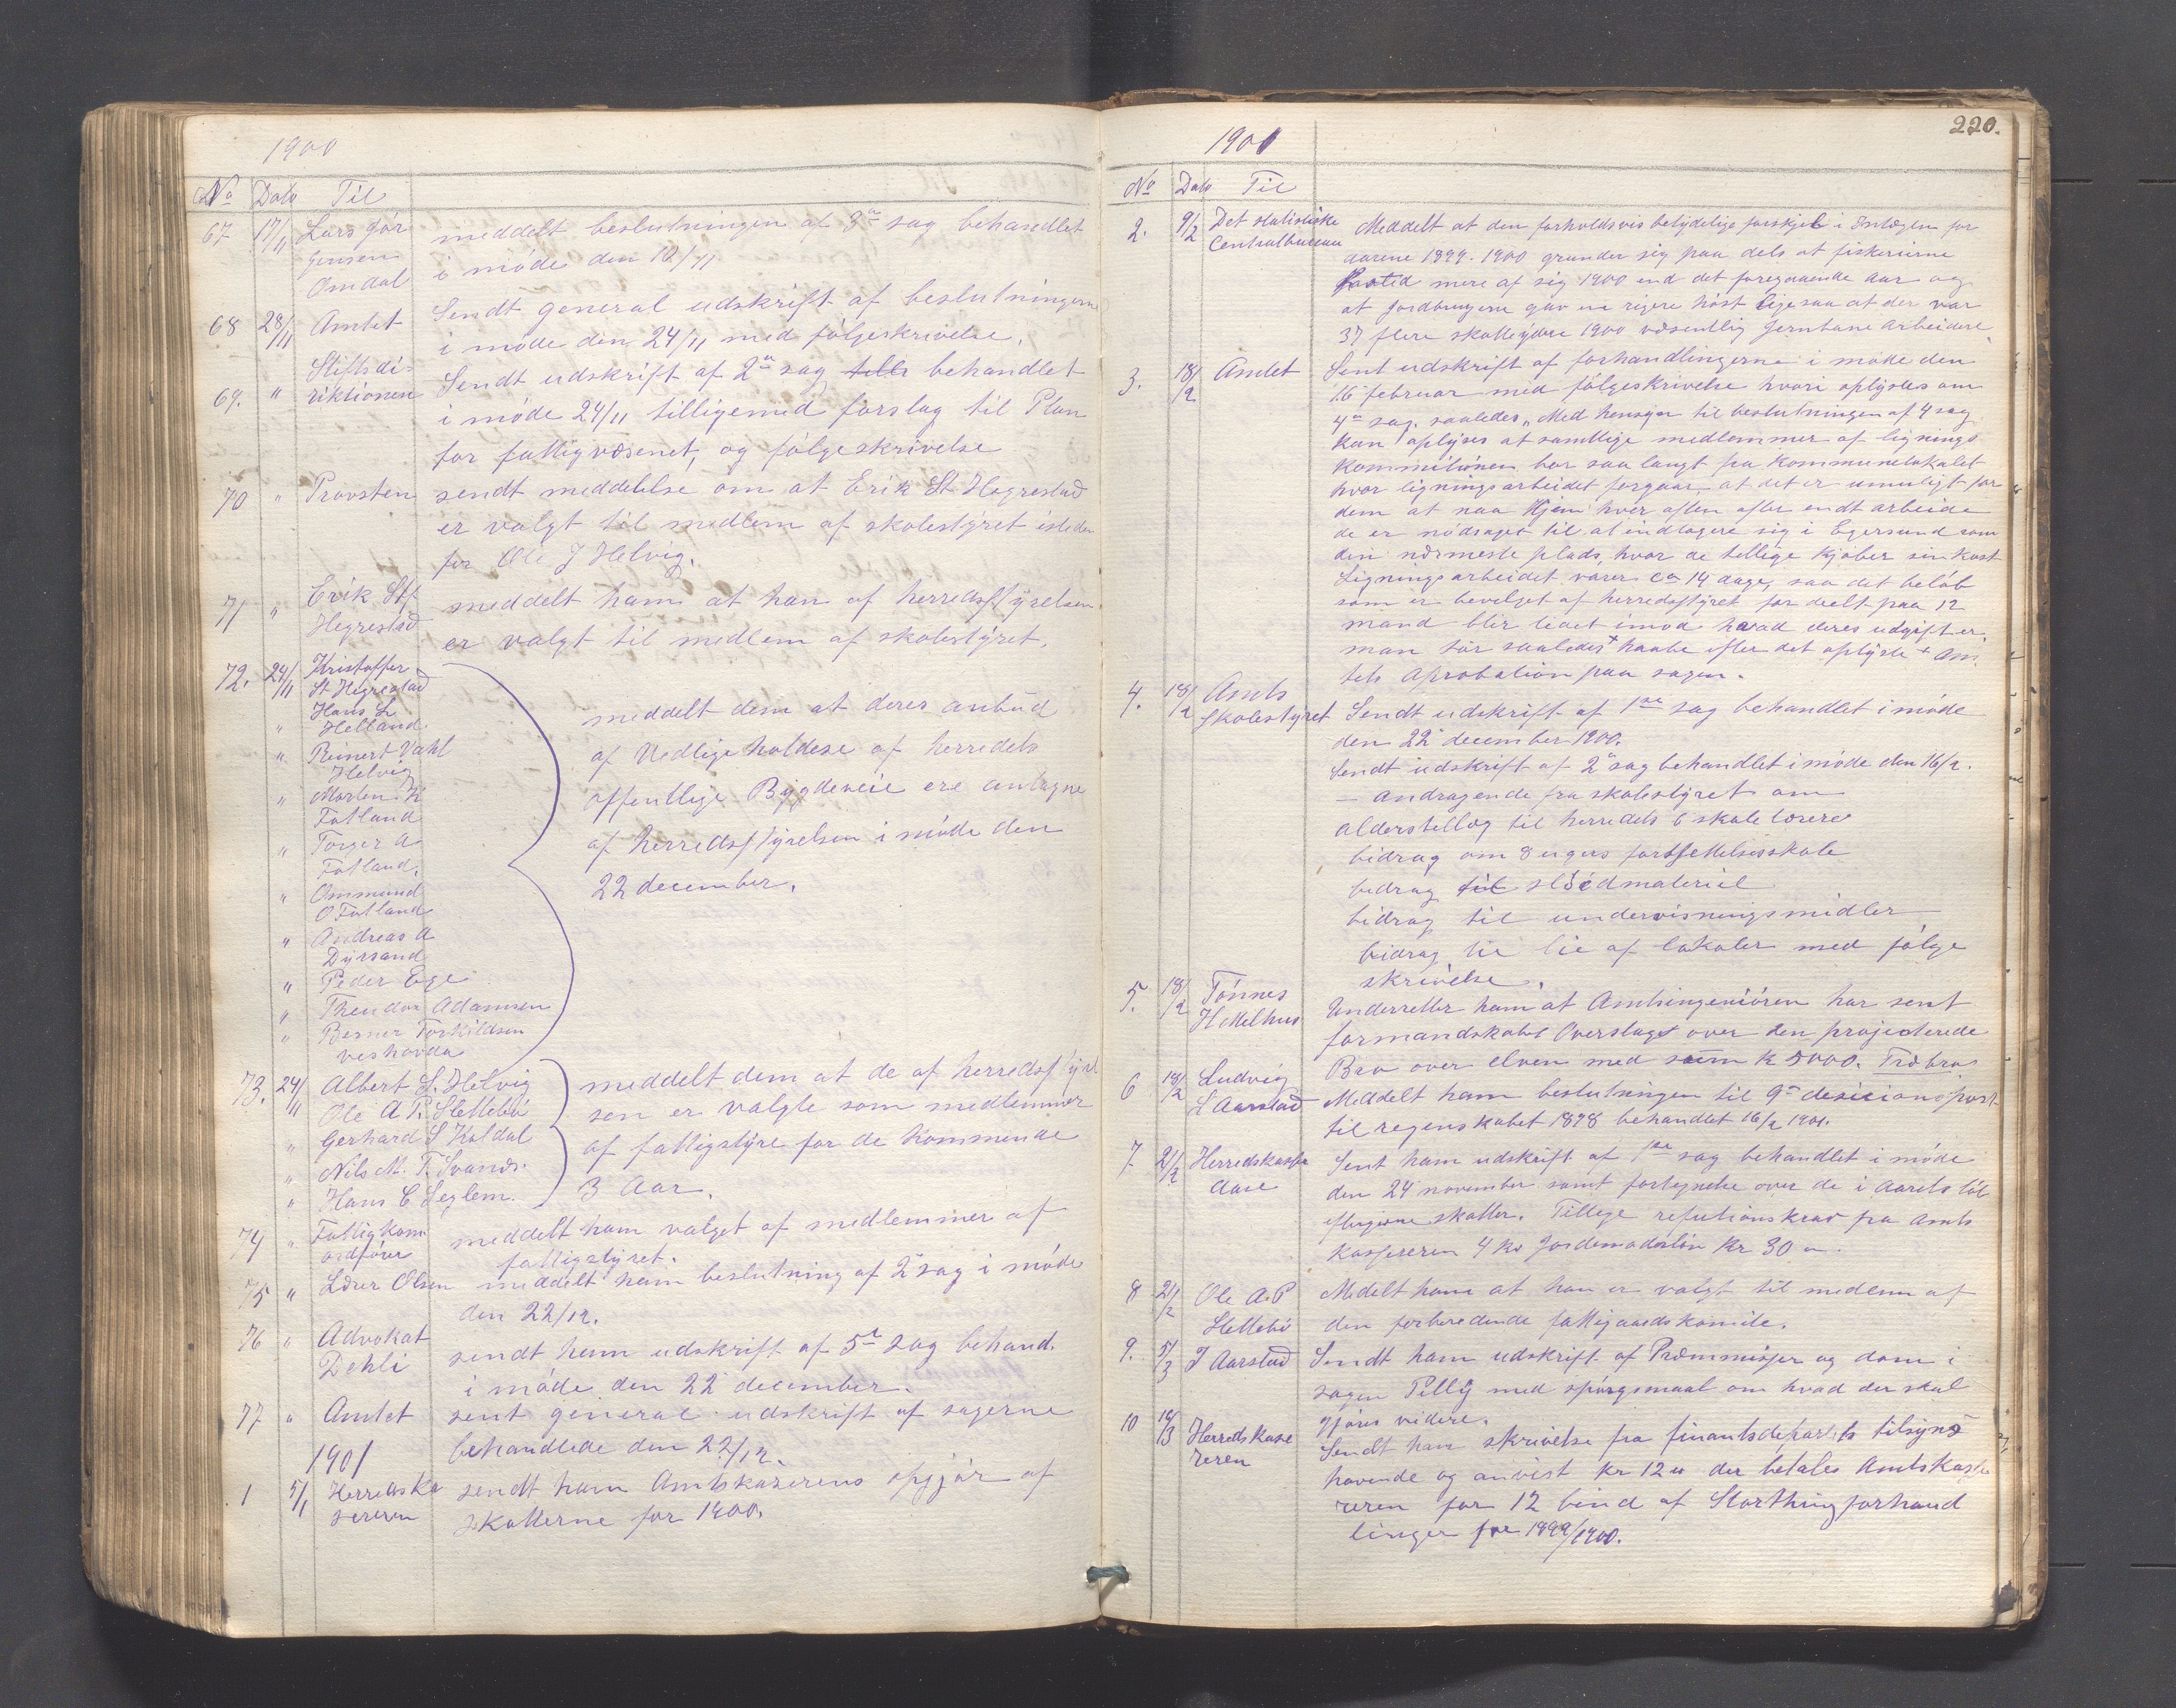 1900
No Dato Til
67 17/11 Lars Jør meddelt beslutningen af 3die sag behandlet
gensen i møde den 10/11
Omdal
68 28/11 Amtet Sendt general udskrift af beslutningerne
i møde den 24/11 med følgeskrivelse.
69. " Stiftsdi- Sendt udskrift af 2den sag behandlet
rektionen i møde 24/11 tilligemed forslag til Plan
for fattigvæsenet, og følgeskrivelse
70 " Provsten sendt meddelelse om at Erik St Hegrestad
er valgt til medlem af skolestyret isteden
for Ole J Helvig.
71 " Erik St meddelt ham at han af herredsstyrelsen
Hegrestad er valgt til medlem af skolestyret.
72. 24/11 Kristoffer
St Hegrestad
Hans L
" Helland
" Reinert Vahl
Helvig
" Morten K
Fotland
" Torger A
Fotland.
" Ommund
O Fotland
" Andreas A
Dyrsand
" Peder Ege
" Theodor Adamsen
" Berner Torkildsen
veshovda
meddelt dem at deres anbud
af Vedligeholdese af herredets
offentlige Bygdeveie ere antagne
af herredsstyrelsen i møde den
22 december.
73. 24/11 Albert L. Helvig meddelt dem at de af herredsstyrel
" Ole A P. Slettebø sen er valgte som medlemmer
" Gerhard S Koldal af fattigstyre for de kommende
" Nils M. T. Svanes. 3 Aar.
" Hans C Seglem.
74 " Fattigkom. meddelt ham valget af medlemmer af
ordfører fattigstyret.
75 " Lærer Olsen meddelt ham beslutning af 2 sag i møde
den 22/12.
76 " Advokat sendt ham udskrift af 5te sag behand.
Dehli i møde den 22 december.
77 " Amtet sent general udskrift af sagerne
behandlede den 22/12.
1901
1 5/1 Herredska sendt ham Amtskaserens opgjør af
sereren skatterne for 1900.
220.
1901
No Dato Til
2. 9/2 Det statistiske Meddelt at den forholdsvis betydelige forskjel i Indtægten for
Centralbureau aarene 1899. 1900 grunder sig paa dels at fiskerierne
mere af sig 1900 end det foregaaende aar og
at Jordbrugerne gav en rigere høst ligesaa at der var
37 flere skatteydere 1900 væsentlig Jernbane arbeidere
3. 18/2 Amdet Sent udskrift af forhandlingerne i møde den
16 februar med følgeskrivelse hvori oplyses om
4de sag. saaledes „Med hensyn til beslutningen af 4 sag
kan oplyses at samtlige medlemmer af lignings
kommitionen bor saa langt fra kommunelokalet
hvor ligningsarbeidet forgaar, at det er umuligt for
dem at naa Hjem hver aften efter endt arbeide
de er nødsaget til at indlogere sig i Egersund som
den nærmeste plads, hvor de tellige kjøber sin kost
Ligningsarbeidet varer ca 14 dage, saa det beløb
som er bevilget af herredsstyret for deelt paa 12
mand blir lidet imod hvad deres udgift er.
man tør saaledes + haabe efter det oplyste + Am
tets aprobation paa sagen.
4. 18/2 Amts Sendt udskrift af 1ste sag behandlet i møde
skolestyret den 22 december 1900.
Sendt udskrift af 2 sag behandlet i møde den 16/2.
— andragende fra skolestyret om
alderstellæg til herredets 6 skole lærere
bidrag om 8 ugers fortsettelsesskole
bidrag til sløidmateriel
bidrag til undervisningsmidler
bidrag til lie af lokaler med følge
skrivelse.
5. 18/2 Tønnes Underretter ham at Amtsingeniøren har sent
H Mælhus formandskabet Overslaget over den projecterede
Bro over elven med sum k 5000. Træbro
6 18/2 Ludvig Meddelt ham beslutningen til 9de desicionspost
S Aarstad til regenskabet 1898 behandlet 16/2 1901.
7. 21/2 Herredskasser Sent ham udskrift af 1ste sag behandlet i møde
Aase den 24 november samt fortegnelse over de i Aarets løb
eftergivne skatter. Tillege refutionskrav fra Amts
kassereren 4 kv Jordemoderløn Kr 30 "
8 21/2 Ole A. P Medelt ham at han er valgt til medlem af
Slettebø den forberedende fattigaardskomite.
9. 5/3 J Aarstad Sendt ham udskrift af Præmmisser og dom i
sagen med spørgsmaal om hvad der skal
gjøres videre.
10 14/3 Herredskase Sendt ham skrivelse fra finantsdepartets tilsyns
reren havende og anvist kr 12 " der betales Amtskasse
reren for 12 bind af Storthingforhand
linger for 1899/1900.